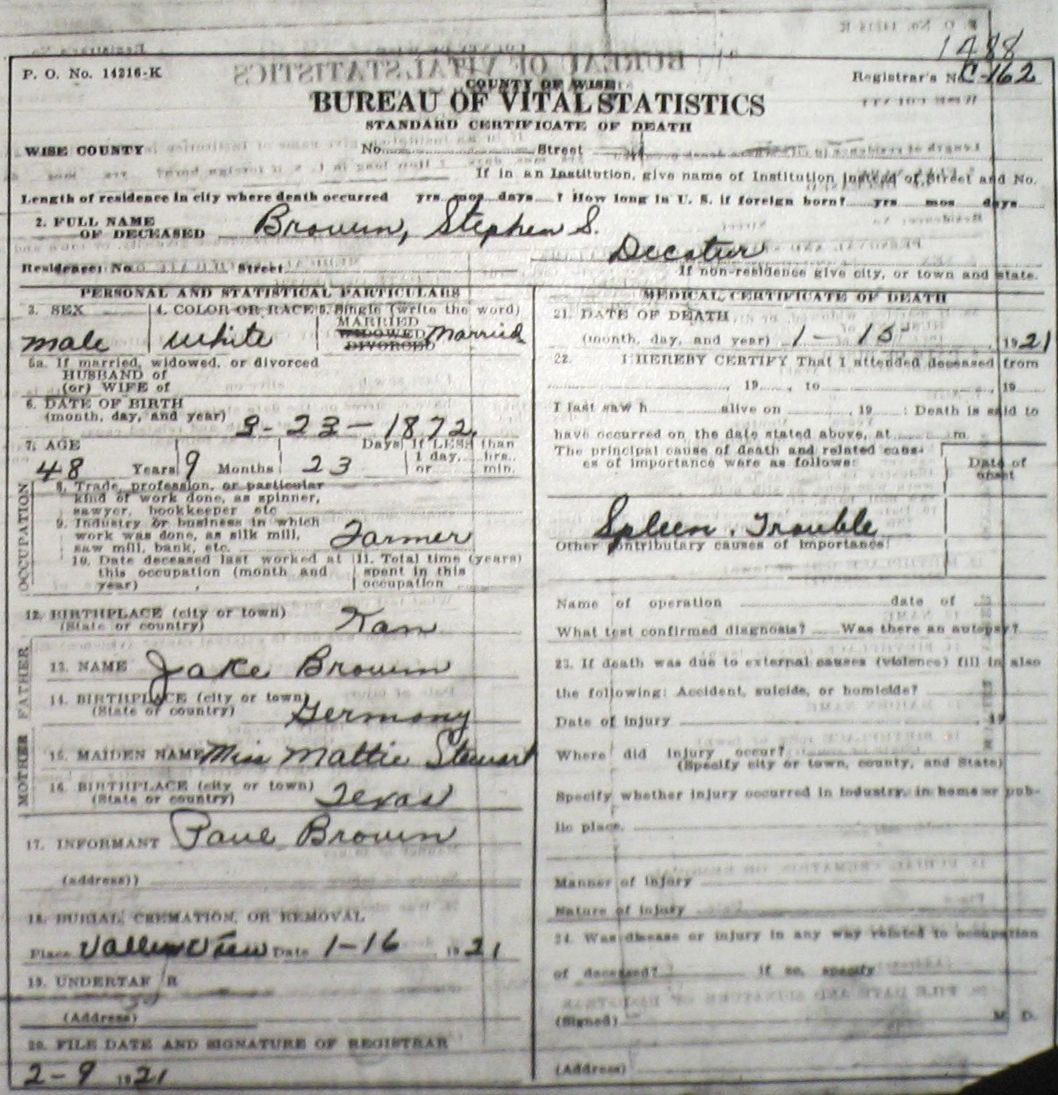 1488
P. O. No. 14216-K
Registrar's No. C-162
COUNTY OF WISE
BUREAU OF VITAL STATISTICS
STANDARD CERTIFICATE OF DEATH
WISE COUNTY No. Street
If in an Institution, give name of Institution instead of Street and No.
Length of residence in city where death occurred yrs. mos. days ? How long in U. S. if foreign born? yrs mos days
2. FULL NAME
OF DECEASED Brown, Stephen S.
Decatur
Residence: No. Street
If non-residence give city, or town and state.
PERSONAL AND STATISTICAL PARTICULARS
3. SEX
male
4. COLOR OR RACE
White
5. Single (write the word)
MARRIED
WIDOWED
DIVORCED
Married
5a. If married, widowed, or divorced
HUSBAND of
(or) WIFE of
6. DATE OF BIRTH
(month, day, and year) 3-23-1872.
7. AGE
48 Years 9 Months 23 Days
If LESS than
1 day, hrs.
or min.
OCCUPATION
8. Trade, profession, or particular
kind of work done, as spinner,
sawyer, bookkeeper etc
9. Industry or business in which
work was done, as silk mill,
saw mill, bank, etc.
Farmer
10. Date deceased last worked at
this occupation (month and
year)
11. Total time (years)
spent in this
occupation
12. BIRTHPLACE (city or town)
(State or country) Kan
FATHER
13. NAME Jake Brown
14. BIRTHPLACE (city or town)
(State or country) Germony
MOTHER
15. MAIDEN NAME Miss Mattie Stewart
16. BIRTHPLACE (city or town)
(State or country) Texas
17. INFORMANT Paul Brown
(address))
18. BURIAL, CREMATION, OR REMOVAL
Place Valley View Date 1-16 1921
19. UNDERTAK R
(Address)
20. FILE DATE AND SIGNATURE OF REGISTRAR
2-9 1921
MEDICAL CERTIFICATE OF DEATH
21. DATE OF DEATH
(month, day, and year) 1-15 1921
22. I HEREBY CERTIFY That I attended deceased from
, 19 , to , 19
I last saw h alive on , 19 : Death is said to
have occurred on the date stated above, at m.
The principal cause of death and related caus-
es of importance were as follows:
Date of
onset
Spleen. Trouble
Other contributary causes of importance:
Name of operation date of
What test confirmed diagnosis? Was there an autopsy?
23. If death was due to external causes (violence) fill in also
the following: Accident, suicide, or homicide?
Date of injury , 19
Where did injury occur?
(Specify city or town, county, and State)
Specify whether injury occurred in industry, in home or pub-
lic place.
Manner of injury
Nature of injury
24. Was disease or injury in any way related to occupation
of deceased? If so, specify
(Signed) M. D.
(Address)